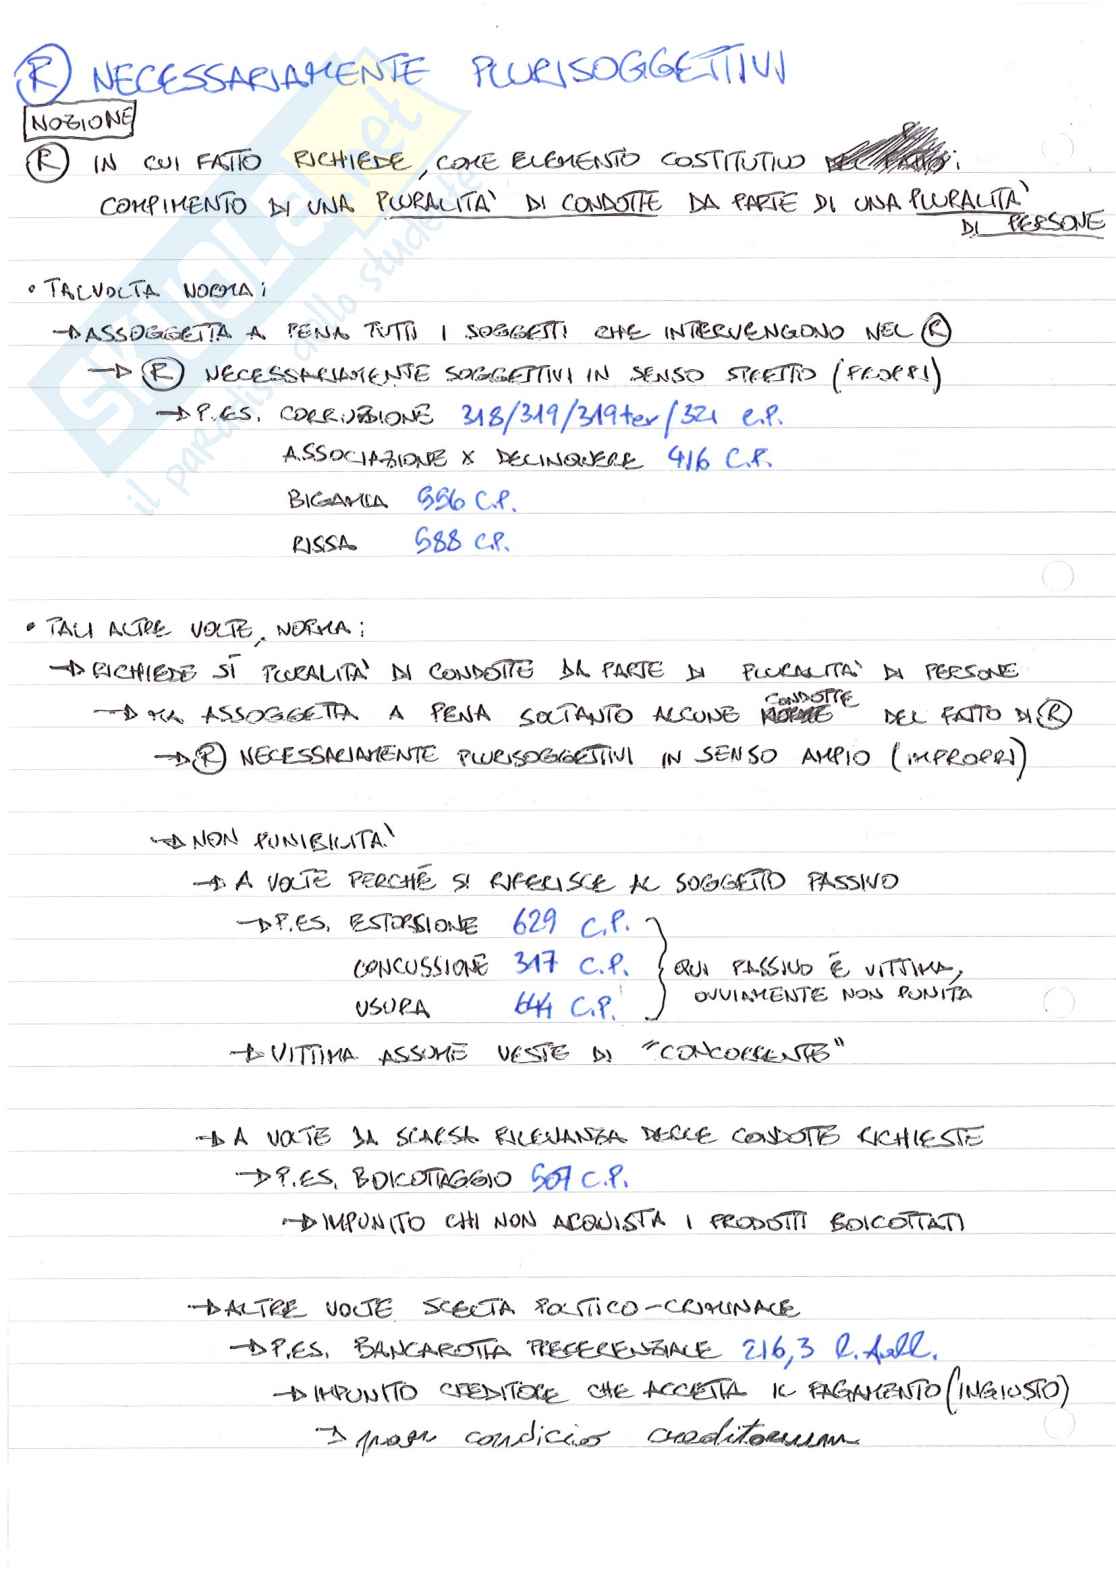 Ⓡ NECESSARIAMENTE PLURISOGGETTIVI
NOZIONE
Ⓡ IN CUI FATTO RICHIEDE, COME ELEMENTO COSTITUTIVO :
COMPIMENTO DI UNA PLURALITA' DI CONDOTTE DA PARTE DI UNA PLURALITA'
DI PERSONE
• TALVOLTA NORMA:
→ ASSOGGETTA A PENA TUTTI I SOGGETTI CHE INTERVENGONO NEL Ⓡ
→ Ⓡ NECESSARIAMENTE SOGGETTIVI IN SENSO STRETTO (PROPRI)
→ P.ES. CORRUZIONE 318/319/319ter/321 c.p.
ASSOCIAZIONE X DELINQUERE 416 C.P.
BIGAMIA 556 C.P.
RISSA 588 C.P.
• TALI ALTRE VOLTE, NORMA:
→ RICHIEDE SÌ PLURALITA' DI CONDOTTE DA PARTE DI PLURALITA' DI PERSONE
→ MA ASSOGGETTA A PENA SOLTANTO ALCUNE CONDOTTE DEL FATTO DI Ⓡ
→ Ⓡ NECESSARIAMENTE PLURISOGGETTIVI IN SENSO AMPIO (IMPROPRI)
→ NON PUNIBILITA'
→ A VOLTE PERCHÉ SI RIFERISCE AL SOGGETTO PASSIVO
→ P.ES. ESTORSIONE 629 C.P.
CONCUSSIONE 317 C.P. } QUI PASSIVO È VITTIMA,
OVVIAMENTE NON PUNITA
USURA 644 C.P.
→ VITTIMA ASSUME VESTE DI "CONCORRENTE"
→ A VOLTE DA SCARSA RILEVANZA DELLE CONDOTTE RICHIESTE
→ P.ES. BOICOTTAGGIO 507 C.P.
→ IMPUNITO CHI NON ACQUISTA I PRODOTTI BOICOTTATI
→ ALTRE VOLTE SCELTA POLITICO-CRIMINALE
→ P.ES. BANCAROTTA PREFERENZIALE 216,3 l. fall.
→ IMPUNITO CREDITORE CHE ACCETTA IL PAGAMENTO (INGIUSTO)
→ condicio creditorum
SKUOLA.net
il paradiso dello studente